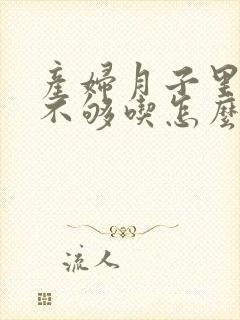 產婦月子里
不够喫怎麽
流人